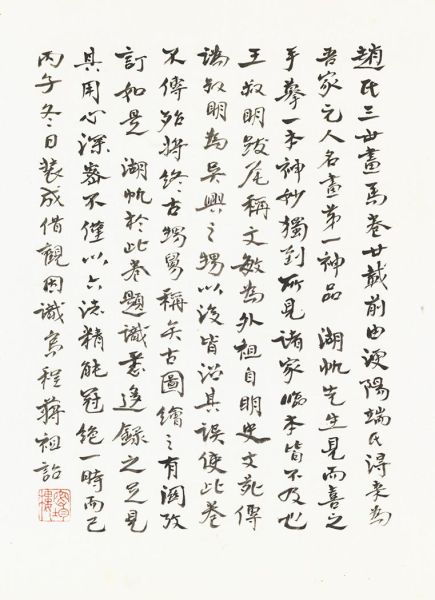 趙氏三世畫馬卷廿載前由溧陽端氏得來為
吾家元人名畫第一神品湖帆先生見而喜之
手摹一本神妙獨到所見諸家臨本皆不及也
王叔明跋尾稱文敏為外祖自明史文苑傳
謁叔明為吳興之甥以後皆沿其誤使此卷
不傳殆將終古甥舅稱矣古圖繪之有關攷
訂如是湖帆於此卷題識悉迻錄之足見
具用心深密不僅以六法精能冠絕一時而已
丙午冬日裝成借觀因識烏程蔣祖詒